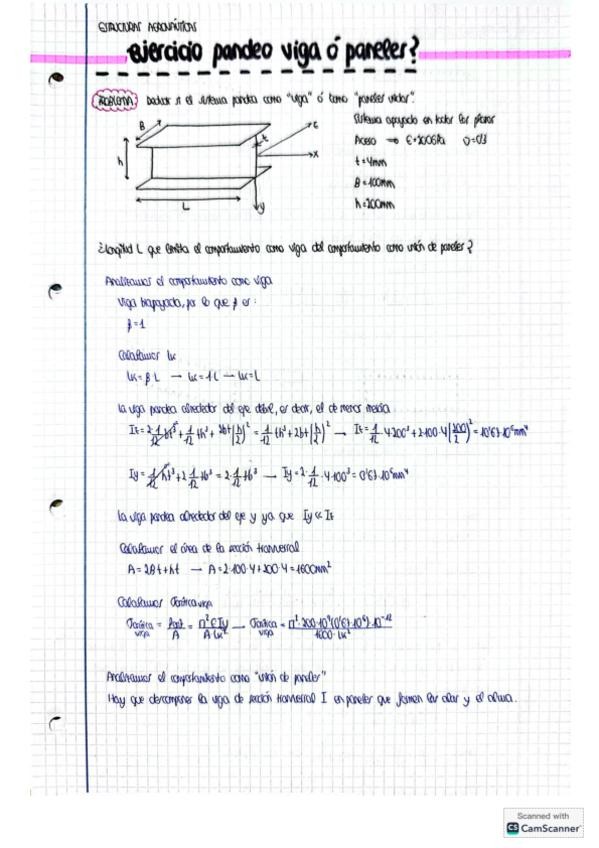 ESTRUCTURAS AERONÁUTICAS
Ejercicio pandeo viga ó paneles?
PROBLEMA: Deducir si el sistema pandea como "viga" ó como "paneles unidos".
B
h
t
L
z
x
y
Sistema apoyado en todos los planos
Acero → E=200GPa υ=0'3
t=4mm
B=100mm
h=200mm
¿Longitud L que limita el comportamiento como viga del comportamiento como unión de paneles?
Analizamos el comportamiento como viga
Viga biapoyada, por lo que β es:
β=1
Calculamos lk
lk=βL → lk=1L → lk=L
La viga pandea alrededor del eje débil, es decir, el de menor inercia
Iz=2·1/12 bt³+1/12 th³+2bt(h/2)²=1/12 th³+2bt(h/2)² → Iz=1/12·4·200³+2·100·4(200/2)²=10'67·10⁶mm⁴
Iy=1/12 ht³+2·1/12 tb³=2·1/12 tb³ → Iy=2·1/12·4·100³=0'67·10⁶mm⁴
La viga pandea alrededor del eje y ya que Iy≪Iz
Calculamos el área de la sección transversal
A=2Bt+ht → A=2·100·4+200·4=1600mm²
Calculamos σcrítica viga
σcrítica viga = Pcrit/A = π²EIy/A lk² → σcrítica viga = π²·200·10⁹(0'67·10⁶)·10⁻¹²/1600·lk²
Analizamos el comportamiento como "unión de paneles"
Hay que descomponer la viga de sección transversal I en paneles que formen las alas y el alma.
Scanned with
CS CamScanner